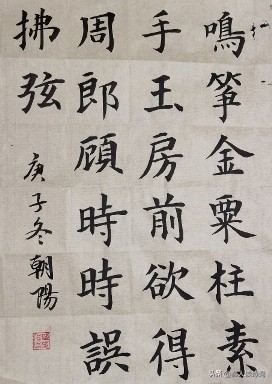 鳴箏金粟柱素
手玉房前欲得
周郎顧時時誤
拂弦
庚子冬朝陽